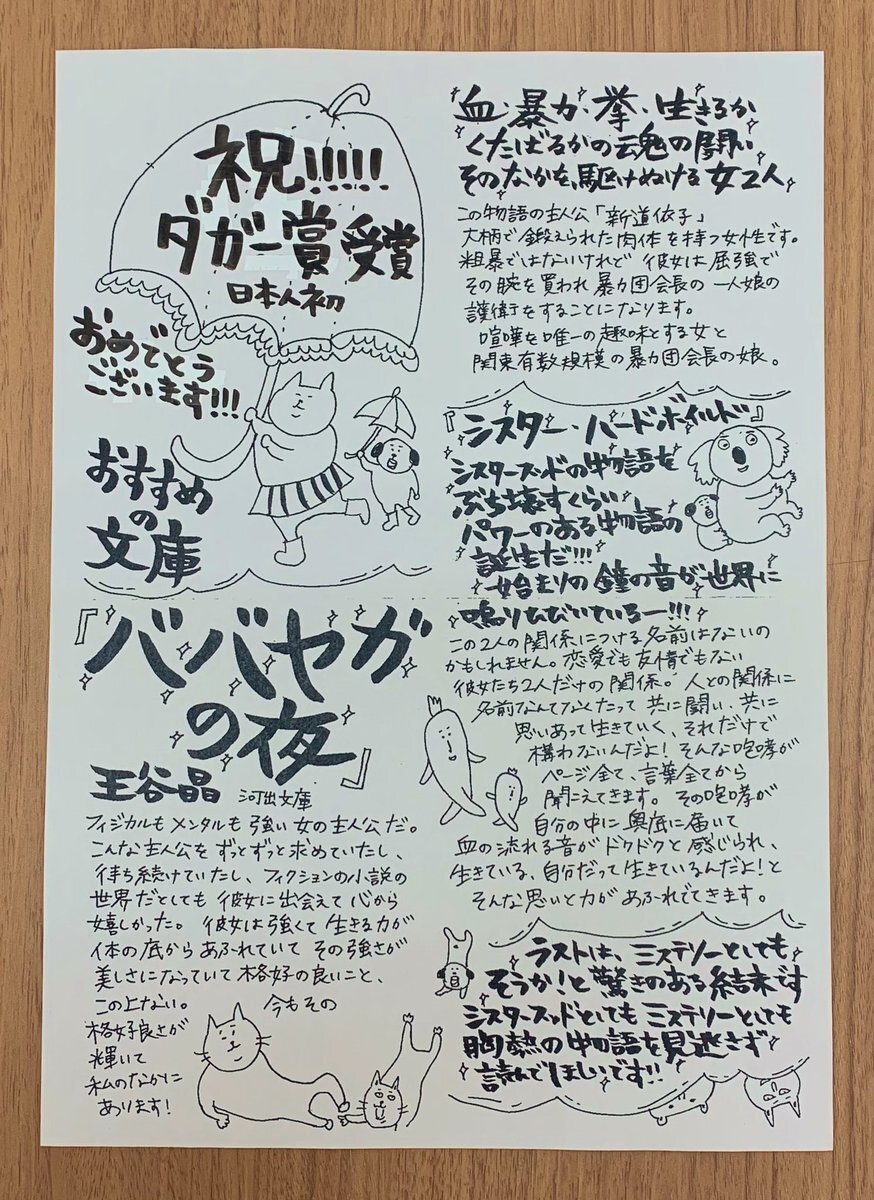 祝!!!!!
ダガー賞受賞
日本人初
おめでとう
ございます!!!
おすすめ
の
文庫
『ババヤガ
の夜』
王谷晶 河出文庫
フィジカルもメンタルも強い女の主人公だ。
こんな主人公をずっとずっと求めていたし、
待ち続けていたし、フィクションの小説の
世界だとしても彼女に出会えて心から
嬉しかった。彼女は強くて生きる力が
体の底からあふれていてその強さが
美しさになっていて格好の良いこと、
この上ない。 今もその
格好良さが
輝いて
私のなかに
あります!
血・暴力・拳・生きるか
くたばるかの魂の闘い
そのなかを駆けぬける女2人
この物語の主人公「新道依子」
大柄で鍛えられた肉体を持つ女性です。
粗暴ではないけれど彼女は屈強で
その腕を買われ暴力団会長の一人娘の
護衛をすることになります。
喧嘩を唯一の趣味とする女と
関東有数規模の暴力団会長の娘。
『シスター・ハードボイルド』
シスターフッドの物語を
ぶち壊すくらい
パワーのある物語の
誕生だ!!!
始まりの鐘の音が世界に
鳴りひびいているー!!!
この2人の関係につける名前はないの
かもしれません。恋愛でも友情でもない
彼女たち2人だけの関係。人との関係に
名前なんてなくたって共に闘い、共に
思いあって生きていく、それだけで
構わないんだよ!そんな咆哮が
ページ全て、言葉全てから
聞こえてきます。その咆哮が
自分の中に奥底に届いて
血の流れる音がドクドクと感じられ、
生きている、自分だって生きているんだよ!と
そんな思いと力があふれでてきます。
ラストは、ミステリーとしても
そうか!と驚きのある結末です
シスターフッドとしてもミステリーとしても
胸熱の物語を見逃さず
読んでほしいです!!